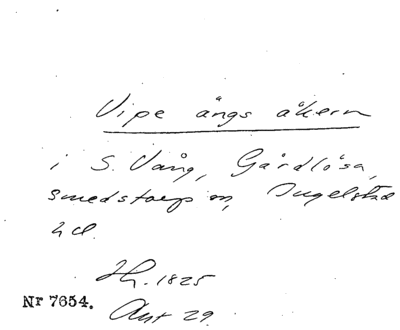 Vipe ängs åkern
i S. Vång, Gårdlösa,
Smedstorps sn, Ingelstad
hd.
Hh. 1825
Nr 7654.
Akt 29